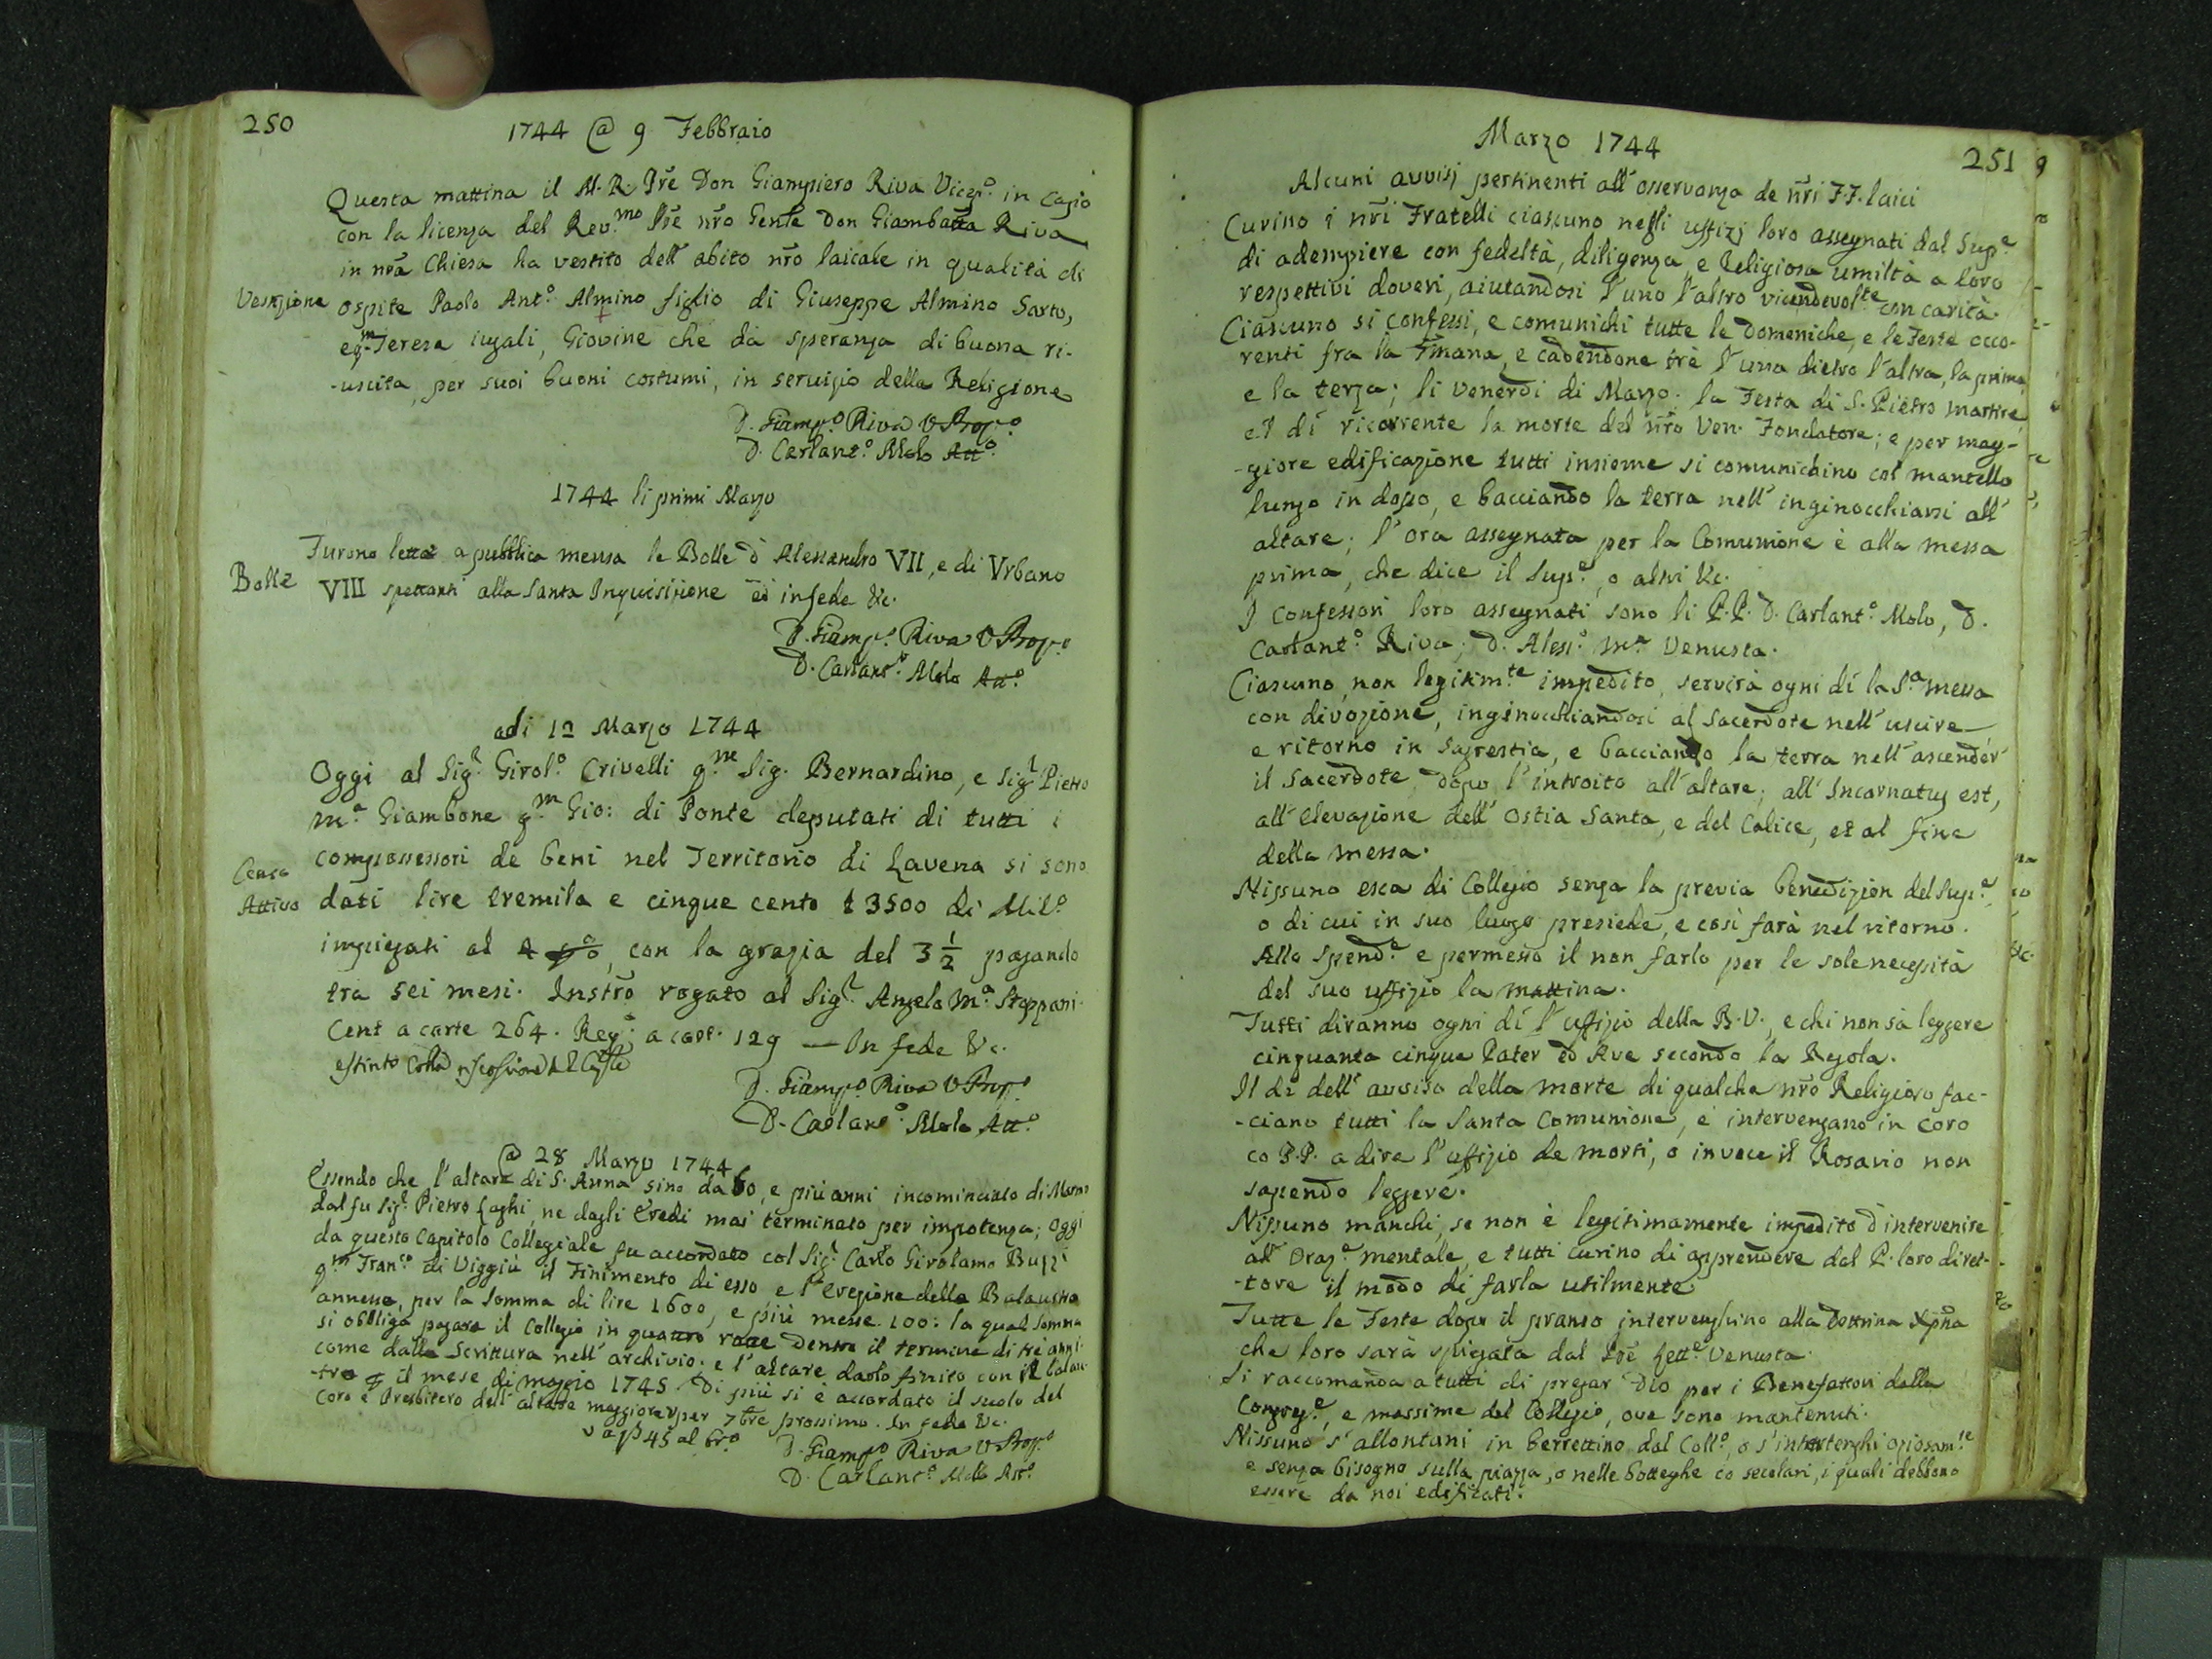 250
1744 @ 9 Febbraio
Questa mattina il M. R. Pre Don Giampiero Riva Vicep.o in Capo
con la licenza del Rev.mo Pre nro Genle Don Giambatta Riva
in nra Chiesa ha vestito dell' abito nro laicale in qualità di
Vestizione
ospite Paolo Ant.o Almino figlio di Giuseppe Almino Sarto,
Teresa iugali, Giovine che dà speranza di buona ri-
-uscita, per suoi buoni costumi, in servizio della Religione
D. Giamp.o Riva V Prop.o
D. Carlant.o Molo Att.o
1744 li primi Marzo
Bolle
Furono lette a pubblica mensa le Bolle d' Alessandro VII, e di Urbano
VIII spettanti alla Santa Inquisizione ed in fede &c.
D. Giamp.o Riva V Prop.o
D. Carlant.o Molo Att.o
adi 12 Marzo 1744
Oggi al Sig.r Girol.o Crivelli q.m Sig. Bernardino, e Sig.r Pietro
M.a Giambone q.m Gio: di Ponte deputati di tutti i
compossessori de beni nel Territorio di Lavena si sono
Censo
Attivo
dati lire tremila e cinque cento £ 3500 di Mil.o
impiegati al 4 p o/o, con la grazia del 3 1/2 pagando
tra sei mesi. Instro rogato al Sig.r Angelo M.a Stoppani.
Cens a carte 264. Reg.o a cart. 129 — In fede &c.
estinto
D. Giamp.o Riva V Prop.o
D. Carlant.o Molo Att.o
@ 28 Marzo 1744
Essendo che l'altare di S. Anna sino da 60, e più anni incominciato di Marmo
dal fu Sig.r Pietro Laghi, ne dagli Eredi mai terminato per impotenza; Oggi
da questo Capitolo Collegiale fu accordato col Sig.r Carlo Girolamo Buzzi
q.m Fran.co di Viggiù il Finimento di esso e l'Erezione della Balaustra
annessa, per la somma di lire 1600, e più messe 100: la qual somma
si obbliga pagare il Collegio in quattro rate dentro il termine di tré anni
come dalla Scrittura nell' archivio. e l'altare darlo finito con il balau-
-tro p il mese di maggio 1745. Di più si è accordato il suolo del
Coro e Presbitero dell' altare maggiore per 7bre prossimo. In fede &c.
D. Giamp.o Riva V Prop.o
D. Carlant.o Molo Att.o
Marzo 1744
251
Alcuni avvisj pertinenti all' osservanza de nri F.F. laici
Curino i nri Fratelli ciascuno negli uffizj loro assegnati dal Sup.e
di adempiere con fedeltà, diligenza, e Religiosa umiltà a loro
respettivi doveri, aiutandosi l'uno l'altro vicendevol.te con carità.
Ciascuno si confessi, e comunichi tutte le Domeniche, e le Feste occo-
renti fra la 7mana, e cadendone trè l'una dietro l'altra, la prima,
e la terza; li Venerdi di Marzo. la Festa di S. Pietro Martire,
e 'l di ricorrente la morte del nro Ven. Fondatore; e per mag-
-giore edificazione tutti insieme si comunichino col mantello
lungo in dosso, e bacciando la terra nell' inginocchiarsi all'
altare; l'ora assegnata per la Comunione è alla messa
prima, che dice il Sup.e, o altri &c.
I Confessori loro assegnati sono li P.P. D. Carlant.o Molo, D.
Carlant.o Riva, D. Aless.o M.a Venusta.
Ciascuno, non legitim.te impedito, servirà ogni dì la S.a messa
con divozione, inginocchiandosi al Sacerdote nell' uscire
e ritorno in Sagrestia, e bacciando la terra nell' ascender
il Sacerdote dopo l'introito all' altare, all' Incarnatus est,
all' elevazione dell' Ostia Santa, e del Calice, et al fine
della messa.
Nissuno esca di Collegio senza la previa benedizion del Sup.e,
o di cui in suo luogo presiede, e così farà nel ritorno.
Allo Spend.e e permesso il non farlo per le sole necessità
del suo uffizio la mattina.
Tutti diranno ogni dì l'uffizio della B.V., e chi non sà leggere
cinquanta cinque Pater ed Ave secondo la Regola.
Il dì dell' avviso della morte di qualche nro Religioso fac-
-ciano tutti la Santa Comunione, e intervengano in coro
co P.P. a dire l'uffizio de morti, o invece il Rosario non
sapendo leggere.
Nissuno manchi, se non è legitimamente impedito d'intervenire
all' Oraz.e mentale, e tutti curino di apprendere dal P. loro diret-
-tore il modo di farla utilmente.
Tutte le Feste dopo il pranso intervenghino alla Dottrina Xpna
che loro sarà spiegata dal Pre Lett.e Venusta.
Si raccomanda a tutti di pregar Dio per i Benefattori della
Congreg.e, e massime del Collegio, ove sono mantenuti.
Nissuno s'allontani in berrettino dal Coll.o, o s'intertenghi oziosam.te
e senza bisogno sulla piazza, o nelle botteghe co secolari, i quali debbono
essere da noi edificati.